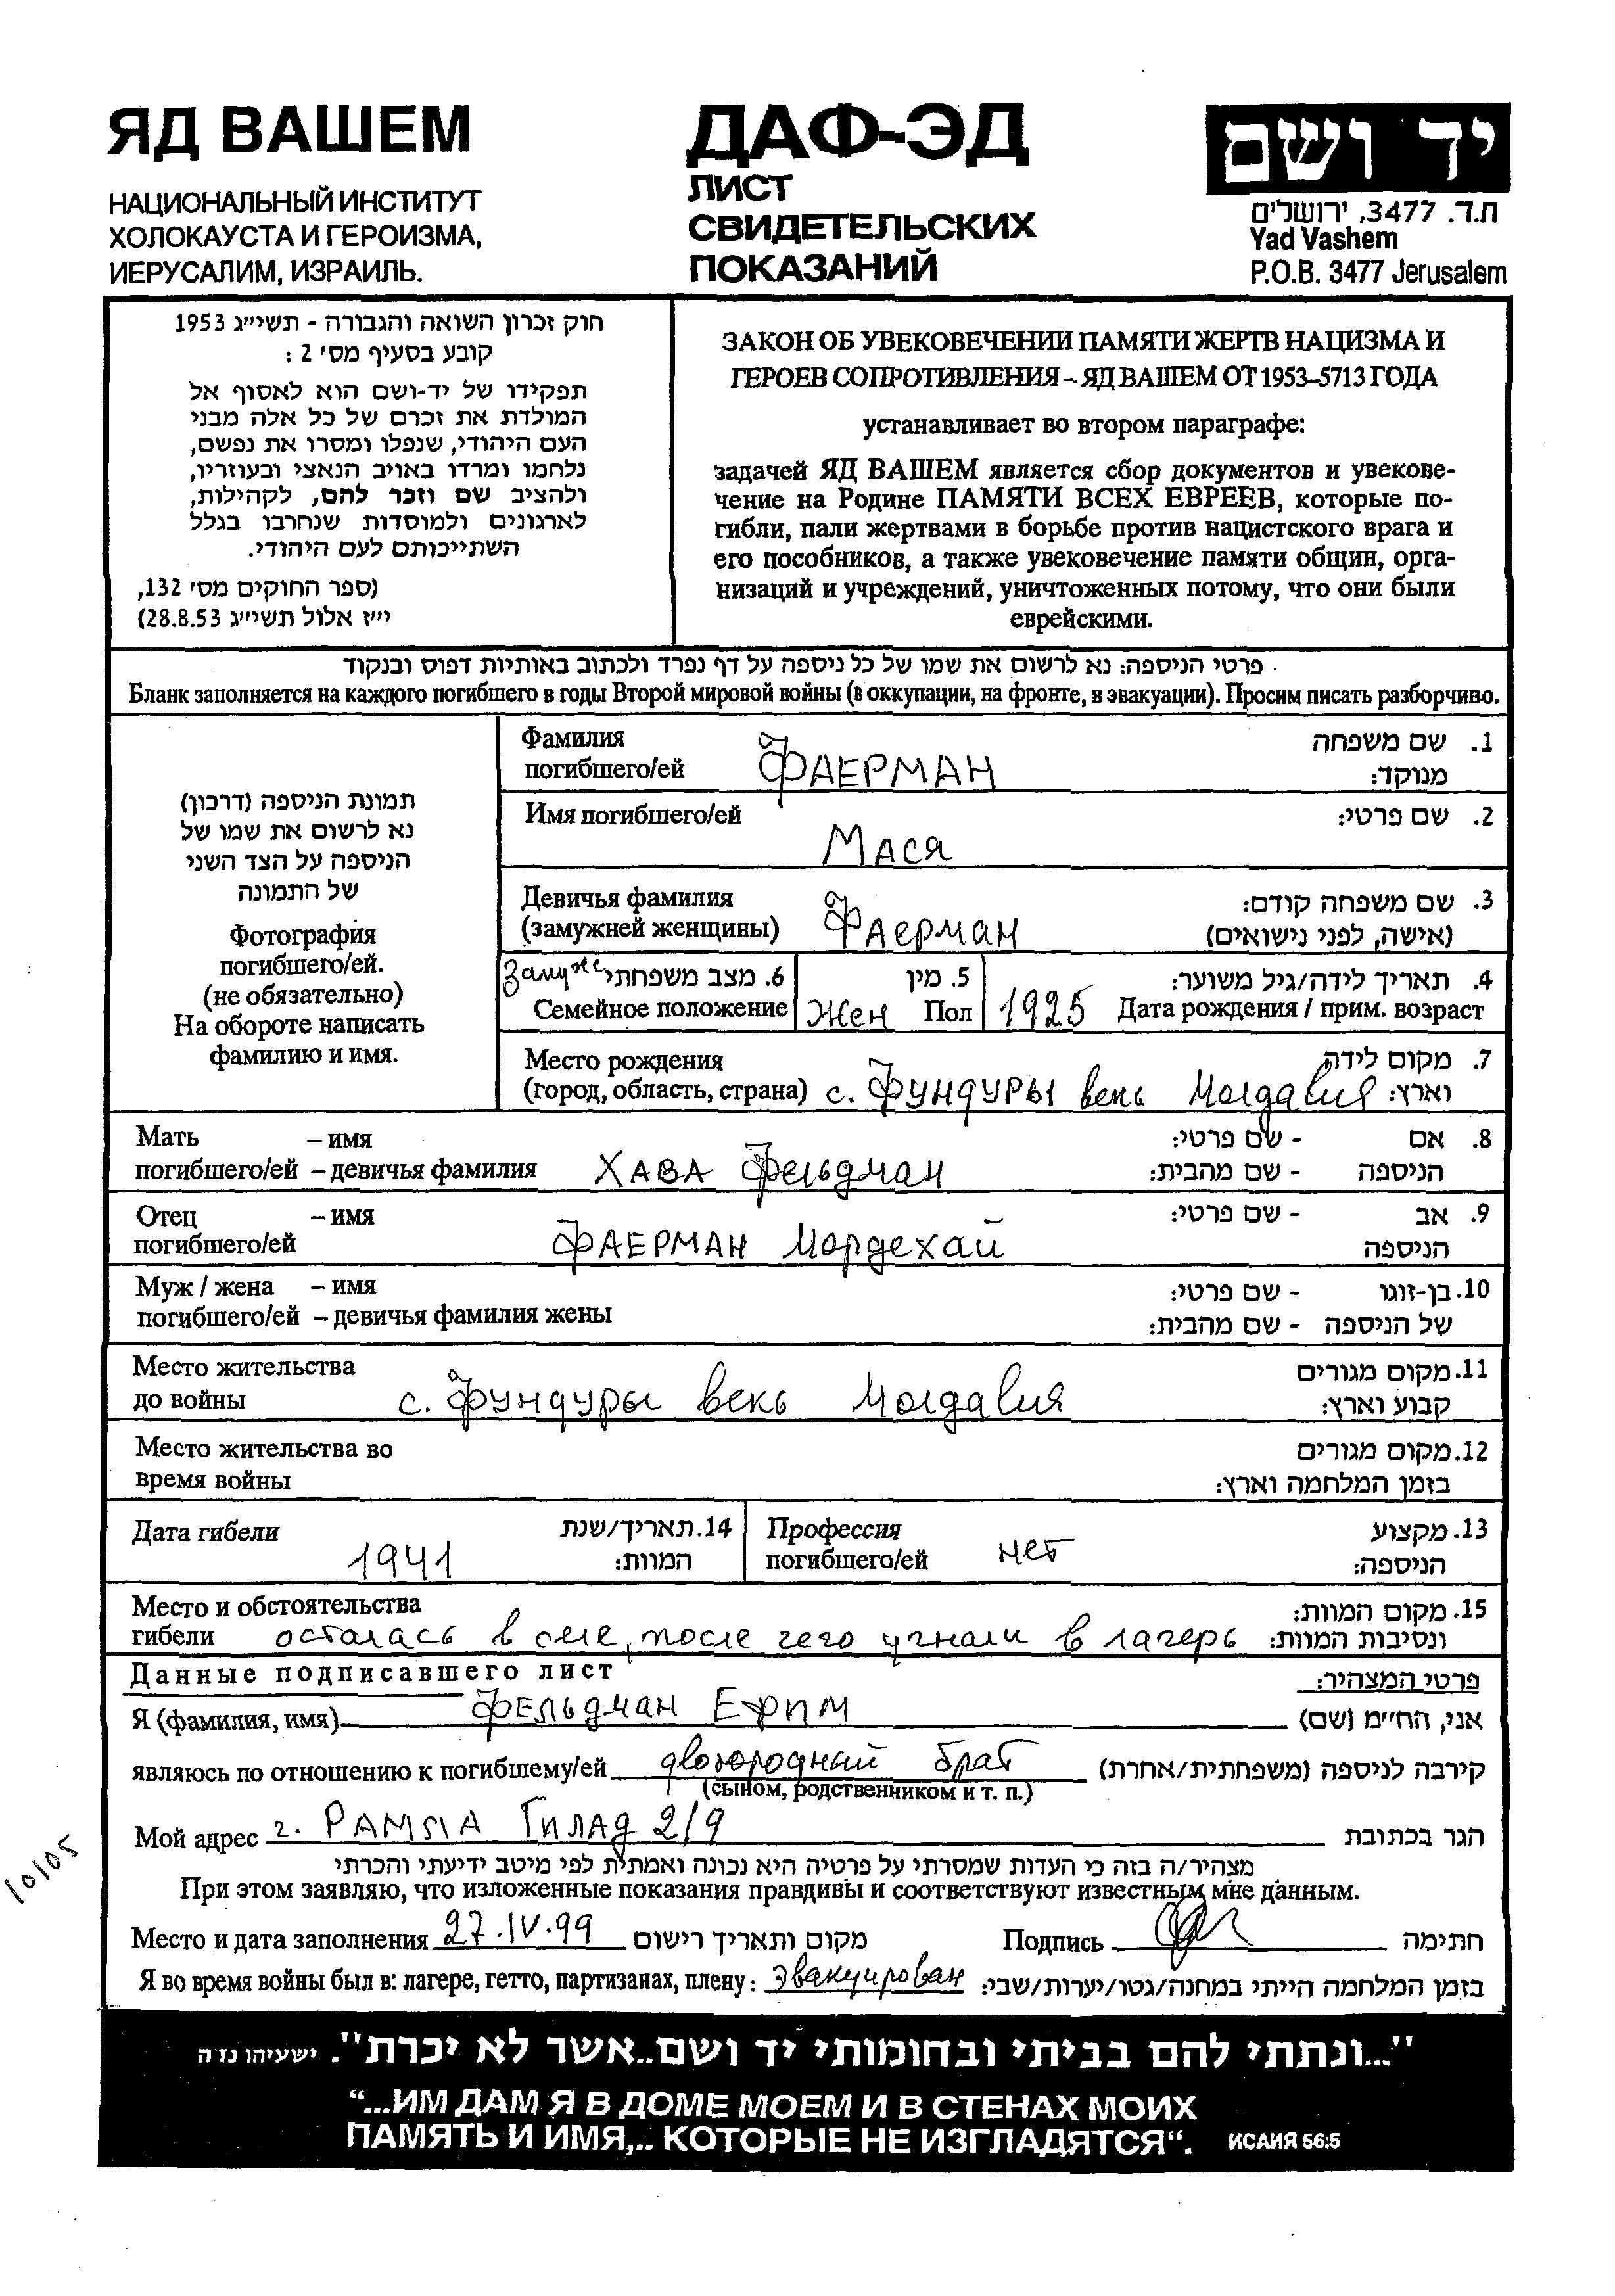 ЯД ВАШЕМ
НАЦИОНАЛЬНЫЙ ИНСТИТУТ
ХОЛОКАУСТА И ГЕРОИЗМА,
ИЕРУСАЛИМ, ИЗРАИЛЬ.
ДАФ-ЭД
ЛИСТ
СВИДЕТЕЛЬСКИХ
ПОКАЗАНИЙ
יד ושם
ת.ד. 3477, ירושלים
Yad Vashem
P.O.B. 3477 Jerusalem
חוק זכרון השואה והגבורה - תשי״ג 1953
קובע בסעיף מס׳ 2 :
תפקידו של יד-ושם הוא לאסוף אל
המולדת את זכרם של כל אלה מבני
העם היהודי, שנפלו ומסרו את נפשם,
נלחמו ומרדו באויב הנאצי ובעוזריו,
ולהציב שם וזכר להם, לקהילות,
לארגונים ולמוסדות שנחרבו בגלל
השתייכותם לעם היהודי.
(ספר החוקים מס׳ 132,
י״ז אלול תשי״ג 28.8.53)
ЗАКОН ОБ УВЕКОВЕЧЕНИИ ПАМЯТИ ЖЕРТВ НАЦИЗМА И
ГЕРОЕВ СОПРОТИВЛЕНИЯ – ЯД ВАШЕМ ОТ 1953–5713 ГОДА
устанавливает во втором параграфе:
задачей ЯД ВАШЕМ является сбор документов и увекове-
чение на Родине ПАМЯТИ ВСЕХ ЕВРЕЕВ, которые по-
гибли, пали жертвами в борьбе против нацистского врага и
его пособников, а также увековечение памяти общин, орга-
низаций и учреждений, уничтоженных потому, что они были
еврейскими.
פרטי הניספה: נא לרשום את שמו של כל ניספה על דף נפרד ולכתוב באותיות דפוס ובנקוד
Бланк заполняется на каждого погибшего в годы Второй мировой войны (в оккупации, на фронте, в эвакуации). Просим писать разборчиво.
תמונת הניספה (דרכון)
נא לרשום את שמו של
הניספה על הצד השני
של התמונה
Фотография
погибшего/ей.
(не обязательно)
На обороте написать
фамилию и имя.
Фамилия שם משפחה .1
погибшего/ей ФАЕРМАН מנוקד:
Имя погибшего/ей שם פרטי: .2
Мася
Девичья фамилия שם משפחה קודם: .3
(замужней женщины) Фаерман (אישה, לפני נישואים)
замуж 6. מצב משפחתי 5. מין 4. תאריך לידה/גיל משוער:
Семейное положение Жен Пол 1925 Дата рождения / прим. возраст
Место рождения 7. מקום לידה
(город, область, страна) с. Фундуры векь Молдавия וארץ:
Мать – имя 8. אם - שם פרטי:
погибшего/ей – девичья фамилия ХАВА Фельдман הניספה - שם מהבית:
Отец – имя 9. אב - שם פרטי:
погибшего/ей ФАЕРМАН Мордехай הניספה
Муж / жена – имя 10. בן-זוגו - שם פרטי:
погибшего/ей – девичья фамилия жены של הניספה - שם מהבית:
Место жительства 11. מקום מגורים
до войны с. Фундуры векь Молдавия קבוע וארץ:
Место жительства во 12. מקום מגורים
время войны בזמן המלחמה וארץ:
Дата гибели 14. תאריך/שנת Профессия 13. מקצוע
1941 המוות: погибшего/ей нет הניספה:
Место и обстоятельства 15. מקום המוות:
гибели осталась в селе, после чего угнали в лагерь ונסיבות המוות:
Данные подписавшего лист פרטי המצהיר:
Я (фамилия, имя) ФЕЛЬДМАН ЕФИМ אני, החי״מ (שם)
являюсь по отношению к погибшему/ей двоюродный брат קירבה לניספה (משפחתית/אחרת)
(сыном, родственником и т. п.)
Мой адрес г. РАМЛА Гилад 2/9 הגר בכתובת
10105
מצהיר/ה בזה כי העדות שמסרתי על פרטיה היא נכונה ואמתית לפי מיטב ידיעתי והכרתי
При этом заявляю, что изложенные показания правдивы и соответствуют известным мне данным.
Место и дата заполнения 27.IV.99 מקום ותאריך רישום Подпись חתימה
Я во время войны был в: лагере, гетто, партизанах, плену: эвакуирован בזמן המלחמה הייתי במחנה/גטו/יערות/שבי:
"...ונתתי להם בביתי ובחומותי יד ושם..אשר לא יכרת". ישעיהו נז ה
“...ИМ ДАМ Я В ДОМЕ МОЕМ И В СТЕНАХ МОИХ
ПАМЯТЬ И ИМЯ,.. КОТОРЫЕ НЕ ИЗГЛАДЯТСЯ“. ИСАИЯ 56:5